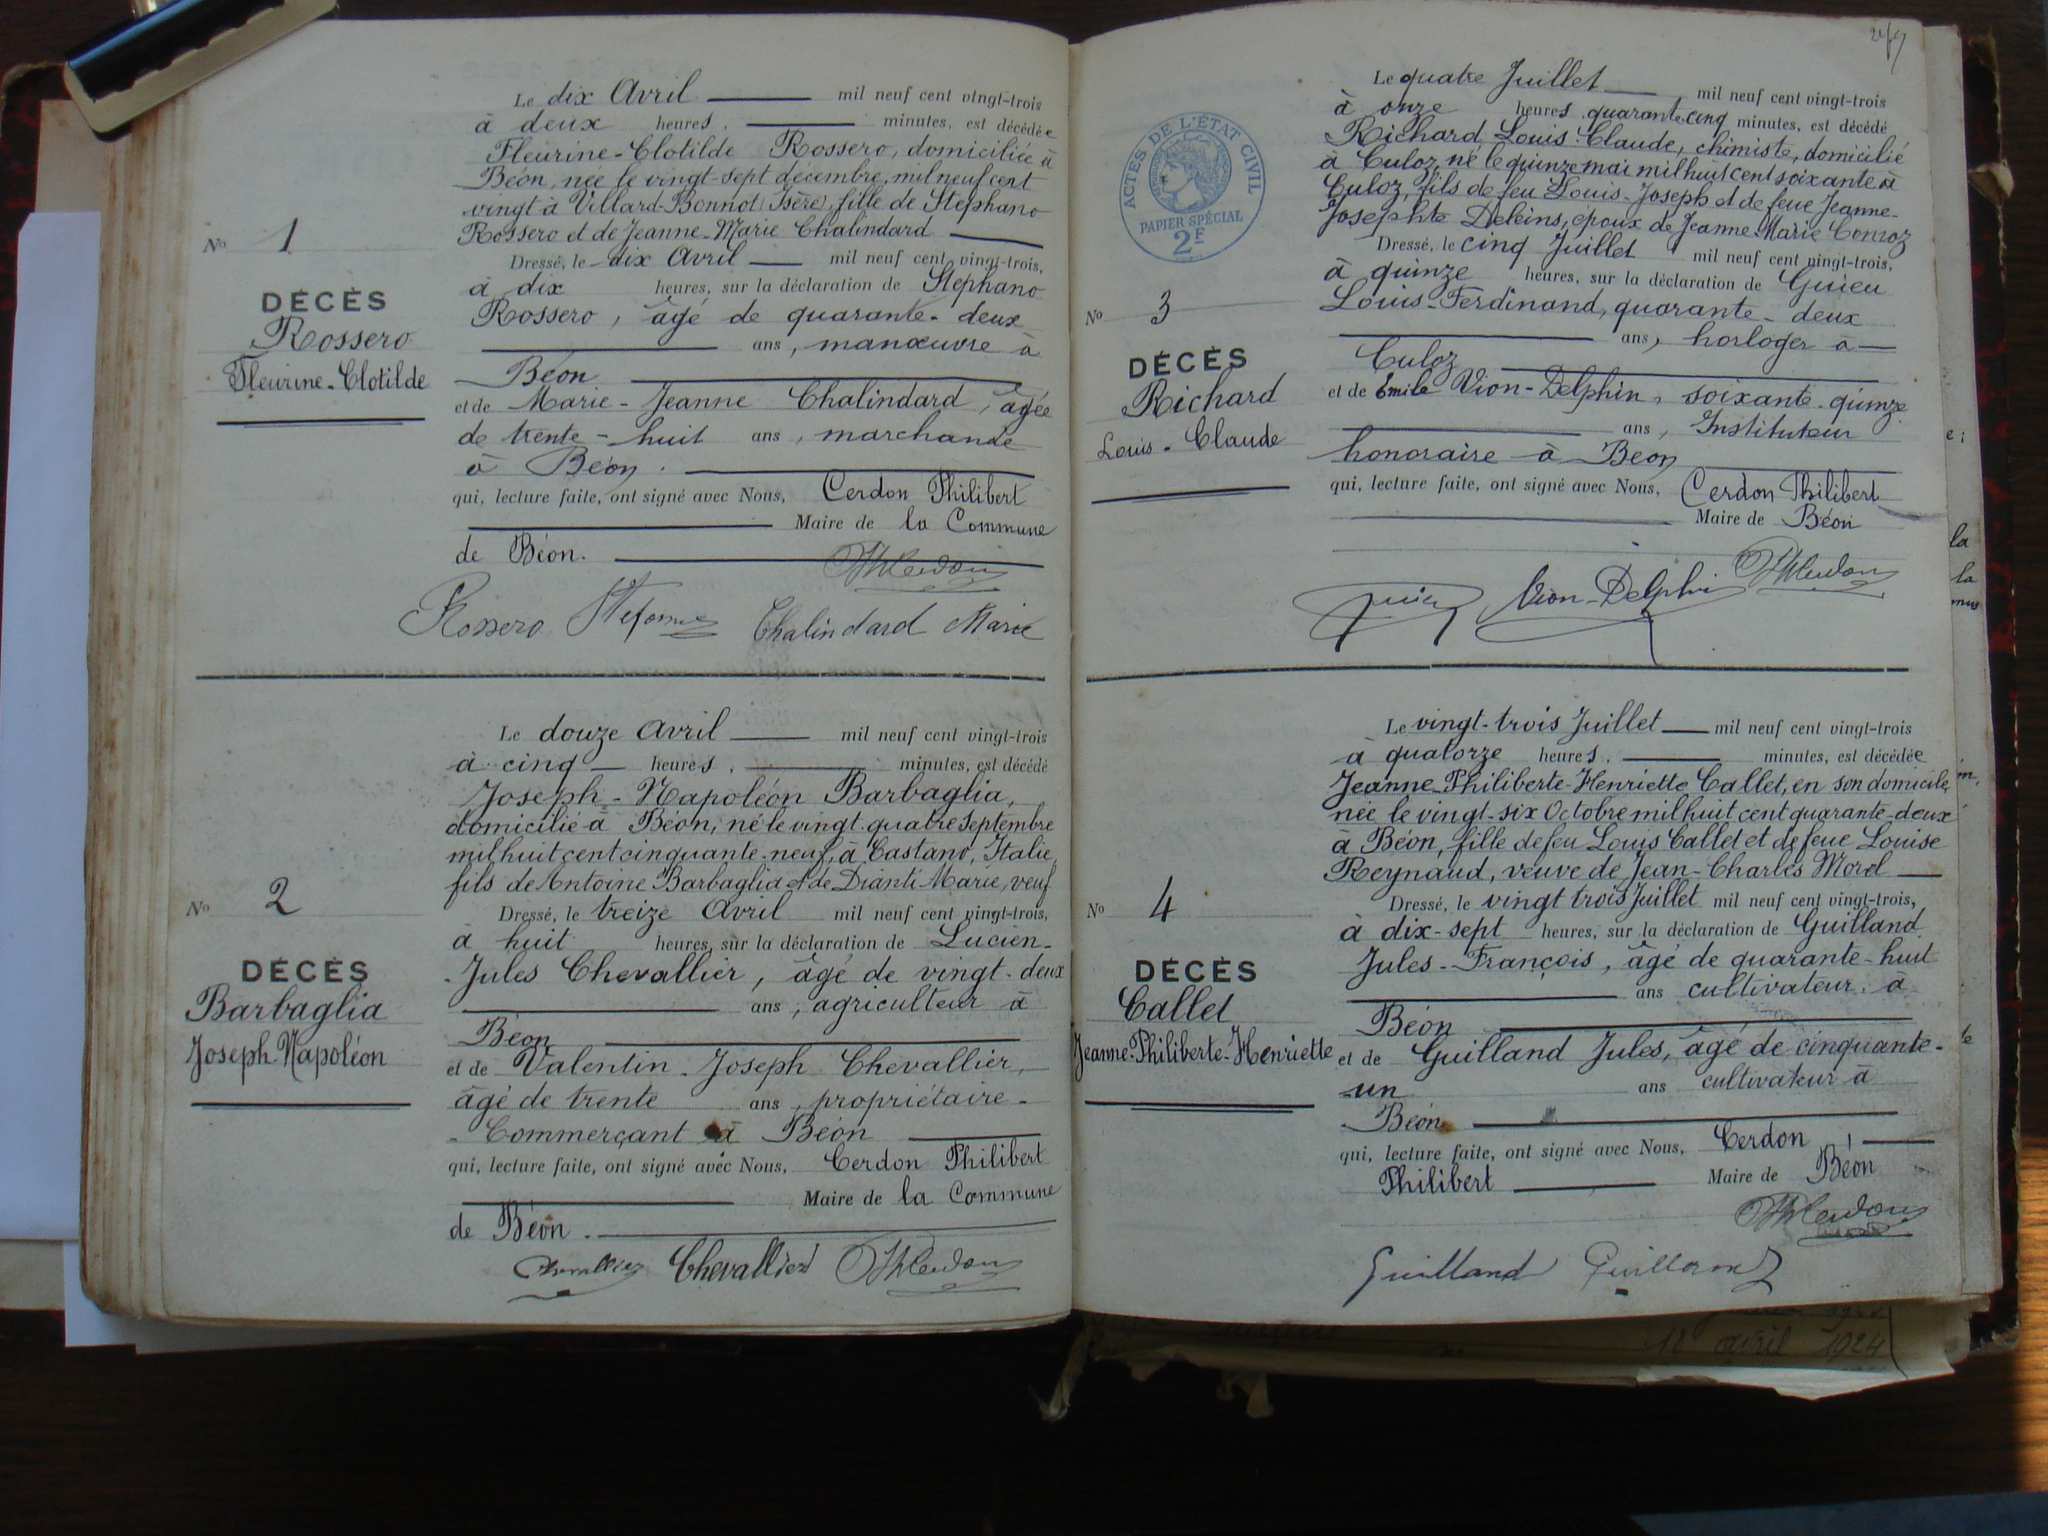 Le dix Avril mil neuf cent vingt-trois
à deux heures, minutes, est décédée
Fleurine-Clotilde Rossero, domiciliée à
Béon, née le vingt-sept décembre, mil neuf cent
vingt à Villard-Bonnot (Isère), fille de Stephano
Rossero et de Jeanne-Marie Chalindard
Dressé, le dix Avril mil neuf cent vingt-trois,
à dix heures, sur la déclaration de Stephano
Rossero, âgé de quarante-deux
ans, manœuvre à
Béon
et de Marie-Jeanne Chalindard, âgée
de trente-huit ans, marchande
à Béon.
qui, lecture faite, ont signé avec Nous, Cerdon Philibert
Maire de la Commune
de Béon.
Rossero Stefano Chalindard Marie
No 1
DÉCÈS
Rossero
Fleurine-Clotilde
Le douze Avril mil neuf cent vingt-trois
à cinq heures, minutes, est décédé
Joseph-Napoléon Barbaglia,
domicilié à Béon, né le vingt-quatre Septembre
mil huit cent cinquante-neuf, à Castano, Italie,
fils de Antoine Barbaglia et de Dianti Marie, veuf
Dressé, le treize Avril mil neuf cent vingt-trois,
à huit heures, sur la déclaration de Lucien-
-Jules Chevallier, âgé de vingt-deux
ans, agriculteur à
Béon
et de Valentin-Joseph Chevallier,
âgé de trente ans, propriétaire-
-Commerçant à Béon
qui, lecture faite, ont signé avec Nous, Cerdon Philibert
Maire de la Commune
de Béon.
Chevallier Chevallier
No 2
DÉCÈS
Barbaglia
Joseph-Napoléon
ACTES DE L'ÉTAT CIVIL
PAPIER SPÉCIAL
2F
Le quatre Juillet mil neuf cent vingt-trois
à onze heures quarante-cinq minutes, est décédé
Richard, Louis-Claude, chimiste, domicilié
à Culoz, né le quinze mai mil huit cent soixante à
Culoz, fils de feu Louis-Joseph et de feue Jeanne-
Josephte Deleins, époux de Jeanne-Marie
Dressé, le cinq Juillet mil neuf cent vingt-trois,
à quinze heures, sur la déclaration de Guieu
Louis-Ferdinand, quarante-deux
ans, horloger à
Culoz
et de Emile Vion-Delphin, soixante-quinze
ans, Instituteur
honoraire à Béon
qui, lecture faite, ont signé avec Nous, Cerdon Philibert
Maire de Béon
Guieu Vion-Delphin
No 3
DÉCÈS
Richard
Louis-Claude
Le vingt-trois Juillet mil neuf cent vingt-trois
à quatorze heures, minutes, est décédée
Jeanne-Philiberte-Henriette Callet, en son domicile,
née le vingt-six Octobre mil huit cent quarante-deux
à Béon, fille de feu Louis Callet et de feue Louise
Reynaud, veuve de Jean-Charles Morel
Dressé, le vingt trois Juillet mil neuf cent vingt-trois,
à dix-sept heures, sur la déclaration de Guilland
Jules-François, âgé de quarante-huit
ans cultivateur à
Béon
et de Guilland Jules, âgé de cinquante-
-un ans cultivateur à
Béon
qui, lecture faite, ont signé avec Nous, Cerdon
Philibert Maire de Béon
Guilland Guilland
No 4
DÉCÈS
Callet
Jeanne-Philiberte-Henriette
la
la
12 avril 1924